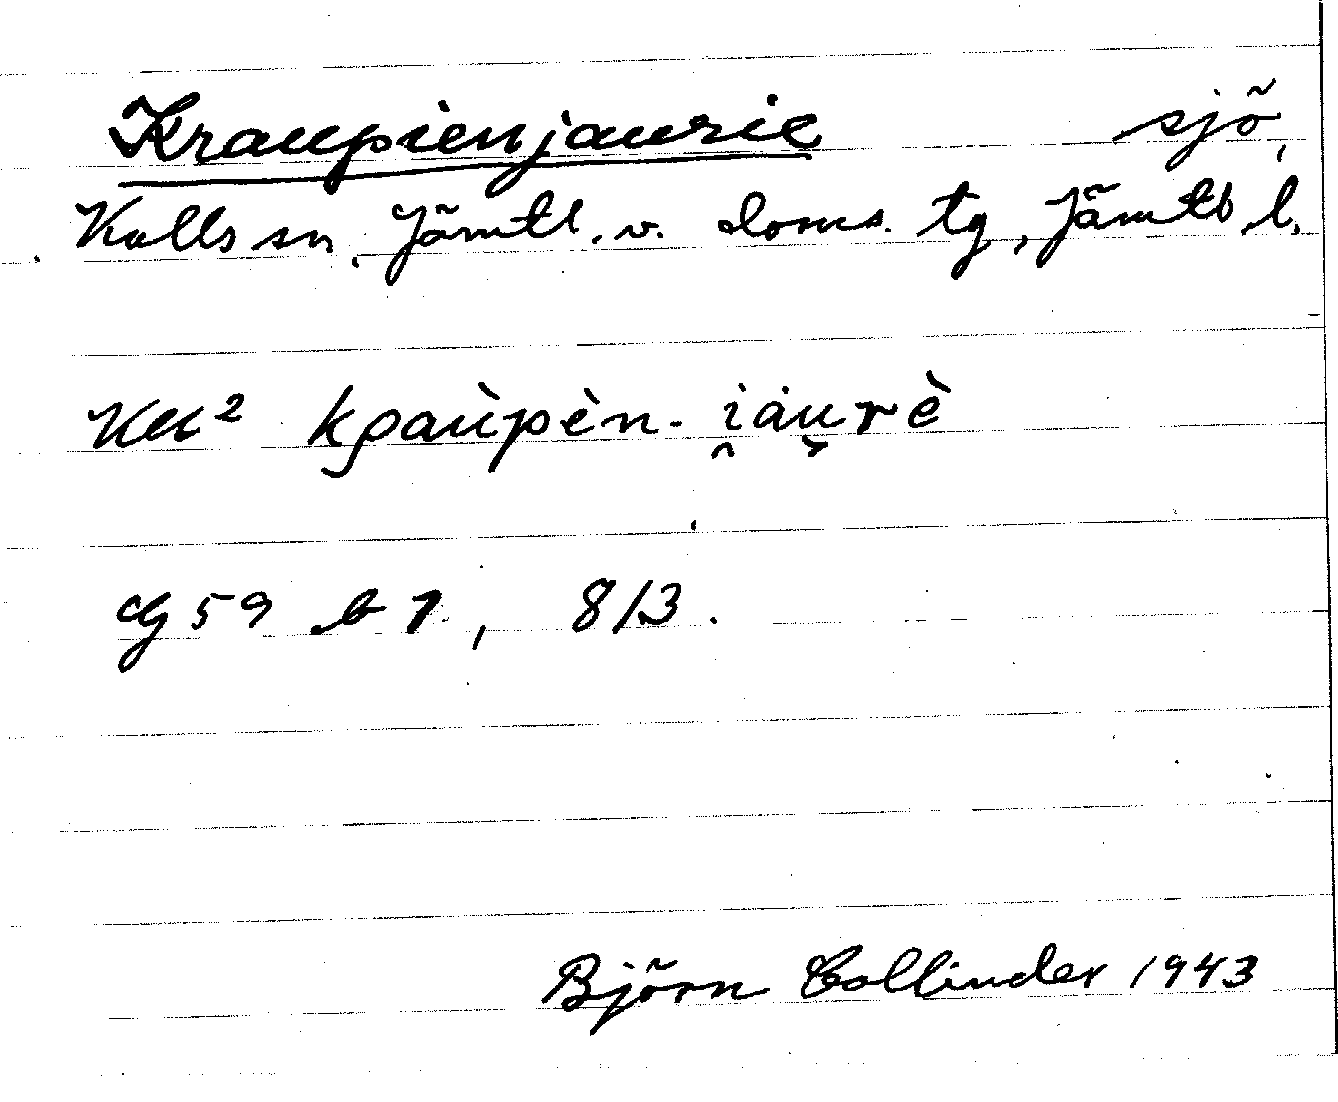 Kraupienjaurie sjö,
Kalls sn, Jämtl. v. doms. tg, Jämtl l.
KK² kρaùpèn-i̯ȧu̯rè
G 59 b 1, 8/3.
Björn Collinder 1943